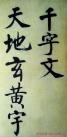 千字文
天地玄黃宇